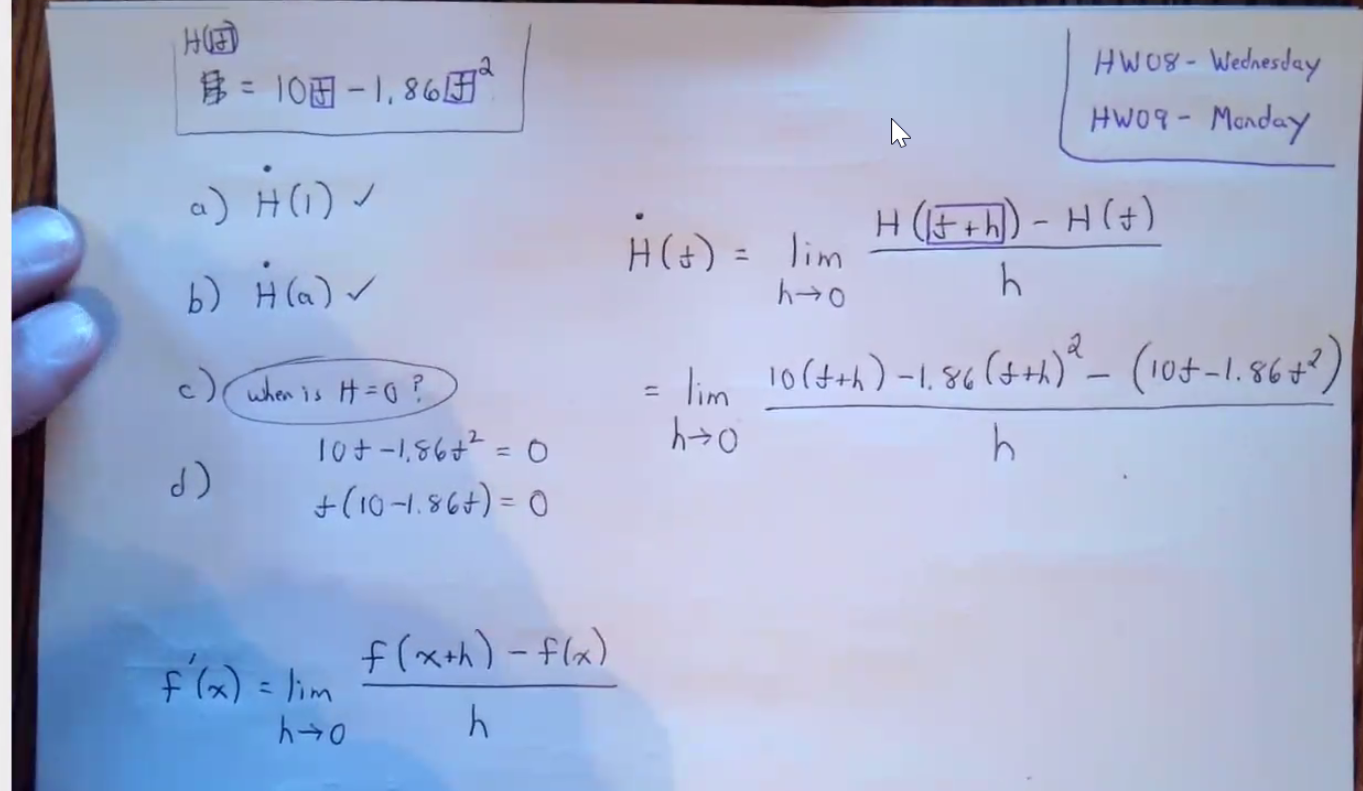 H(t)
= 10t - 1.86t²
HW08 - Wednesday
HW09 - Monday
a) Ḣ(1) ✓
b) Ḣ(a) ✓
c) when is H=0 ?
10t - 1.86t² = 0
d)
t(10 - 1.86t) = 0
Ḣ(t) = lim h→0 (H(t+h) - H(t)) / h
= lim h→0 (10(t+h) - 1.86(t+h)² - (10t - 1.86t²)) / h
f'(x) = lim h→0 (f(x+h) - f(x)) / h